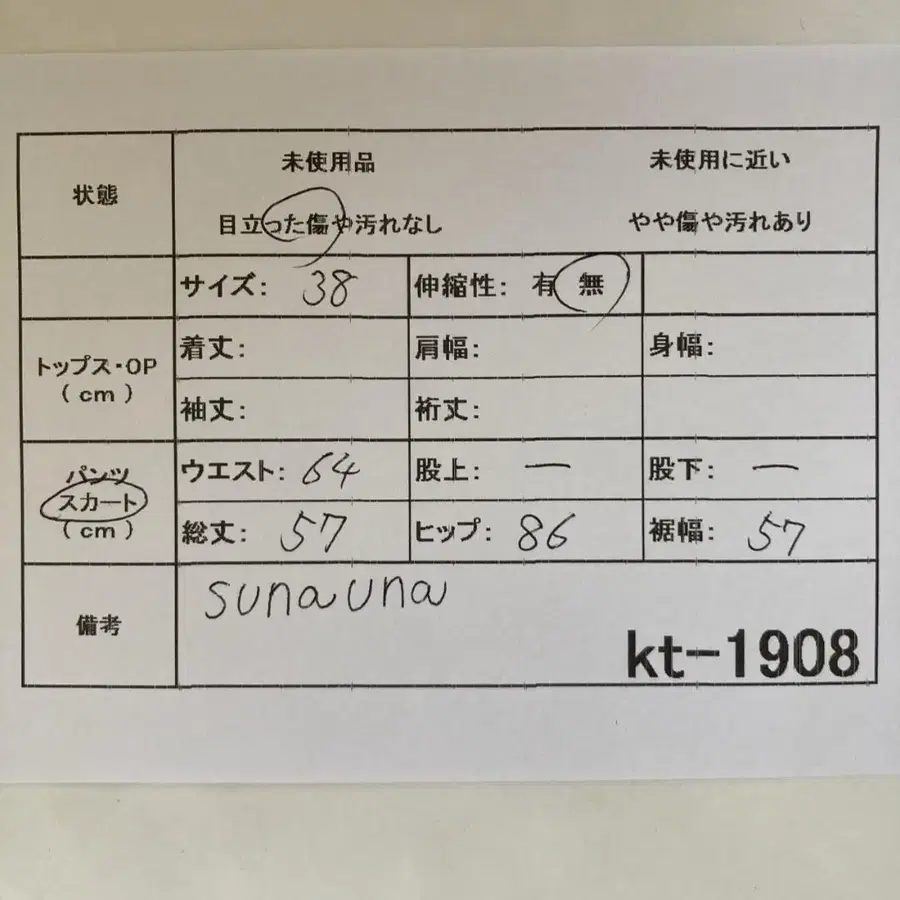 状態
未使用品 未使用に近い
目立った傷や汚れなし やや傷や汚れあり
サイズ: 38 伸縮性: 有 無
トップス・OP
( cm )
着丈: 肩幅: 身幅:
袖丈: 裄丈:
パンツ
スカート
( cm )
ウエスト: 64 股上: ー 股下: ー
総丈: 57 ヒップ: 86 裾幅: 57
備考
sunauna
kt-1908